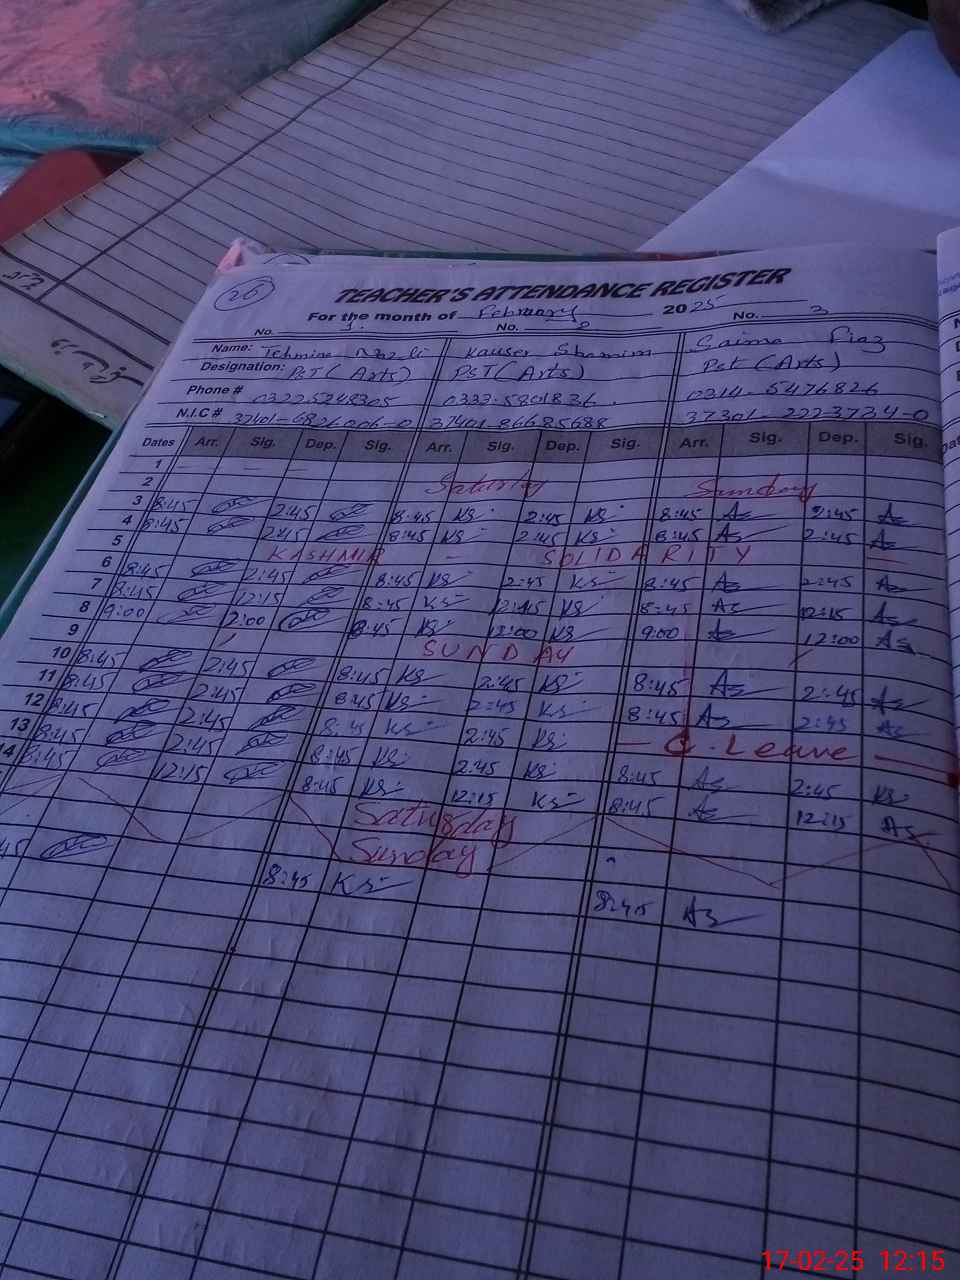 26
TEACHER'S ATTENDANCE REGISTER
For the month of February 2025
No. 1. No. 2 No. 3
Name: Tehmina Kauser Shamim Saima
Designation: PST (Arts) PST (Arts) PST (Arts)
Phone # 0322-5248305 0333-5801836 0314-5476826
N.I.C # 37401-6826006-0 37401-86685688 37301-222-3734-0
Dates Arr. Sig. Dep. Sig. Arr. Sig. Dep. Sig. Arr. Sig. Dep. Sig.
1
2 Saturday Sunday
3 8:45 2:45 8:45 KS 2:45 KS 8:45 As 2:45 As
4 8:45 2:45 8:45 KS 2:45 KS 8:45 As 2:45 As
5 KASHMIR - SOLIDARITY -
6 8:45 2:45 8:45 KS 2:45 KS 8:45 As 2:45 As
7 8:45 12:15 8:45 KS KS 8:45 As 12:15 As
8 9:00 2:00 8:45 KS 12:00 KS 9:00 As 12:00 As
9 SUNDAY
10 8:45 2:45 8:45 KS 2:45 KS 8:45 As 2:45 As
11 8:45 2:45 8:45 KS 2:45 KS 8:45 As 2:45 As
12 8:45 2:45 8:45 KS 2:45 KS - C. Leave -
13 8:45 2:45 8:45 KS 2:45 KS 8:45 As 2:45 KS
14 8:45 12:15 8:45 KS 12:15 KS 8:45 As 12:15 As
Saturday
Sunday
45 8:45 KS 8:45 As
17-02-25 12:15